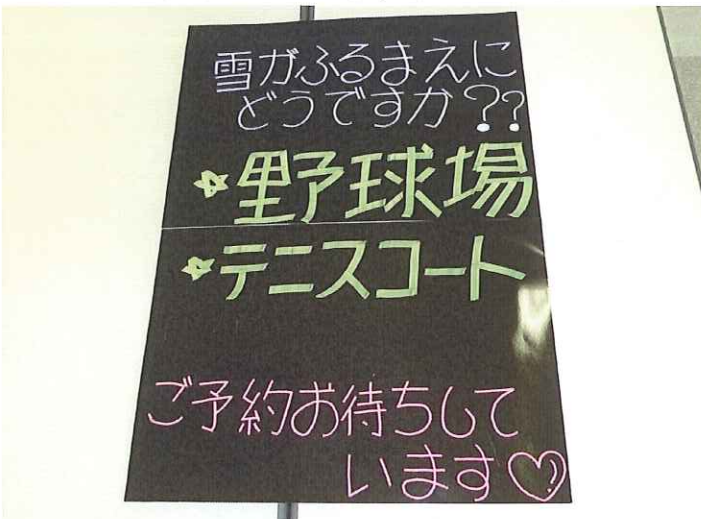 雪がふるまえに
どうですか??
☆野球場
☆テニスコート
ご予約お待ちして
います♡